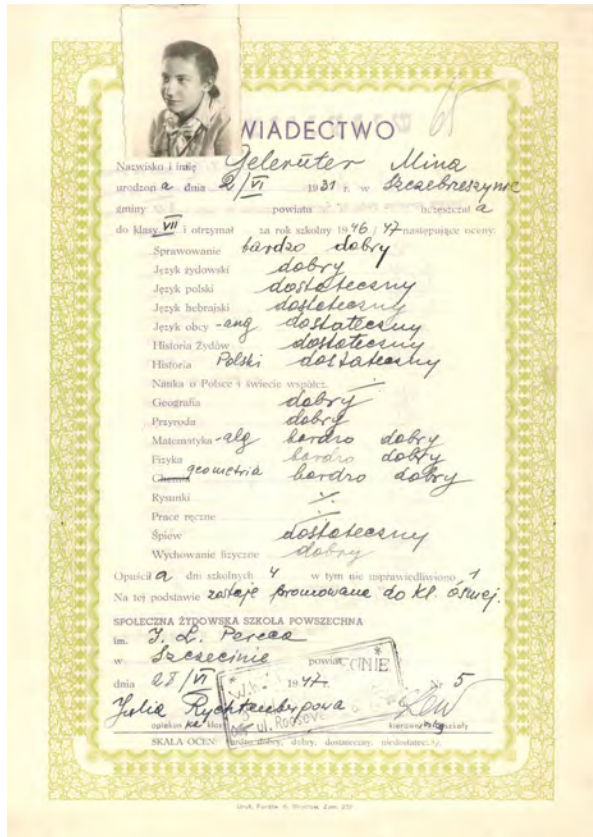 WIADECTWO 65
Nazwisko i imię Geleruter Mina
urodzona dnia 2/VI 1931 r. w Szczebrzeszynie
gminy powiatu uczęszczała
do klasy VII i otrzymał za rok szkolny 1946/47 następujące oceny:
Sprawowanie bardzo dobry
Język żydowski dobry
Język polski dostateczny
Język hebrajski dostateczny
Język obcy - ang dostateczny
Historia Żydów dostateczny
Historia Polski dostateczny
Nauka o Polsce i świecie współcz.
Geografia dobry
Przyroda dobry
Matematyka - alg bardzo dobry
Fizyka bardzo dobry
Chemia geometria bardzo dobry
Rysunki
Prace ręczne
Śpiew dostateczny
Wychowanie fizyczne dobry
Opuściła dni szkolnych 4 w tym nie usprawiedliwiono 1
Na tej podstawie zostaje promowana do kl. ósmej.
SPOŁECZNA ŻYDOWSKA SZKOŁA POWSZECHNA
im. I. L. Pereca
w Szczecinie powiat
dnia 28/VI 1947 r. Nr 5
Julia
opiekun ka klasy kierownik szkoły
ul.
SKALA OCEN: bardzo dobry, dobry, dostateczny, niedostateczny.